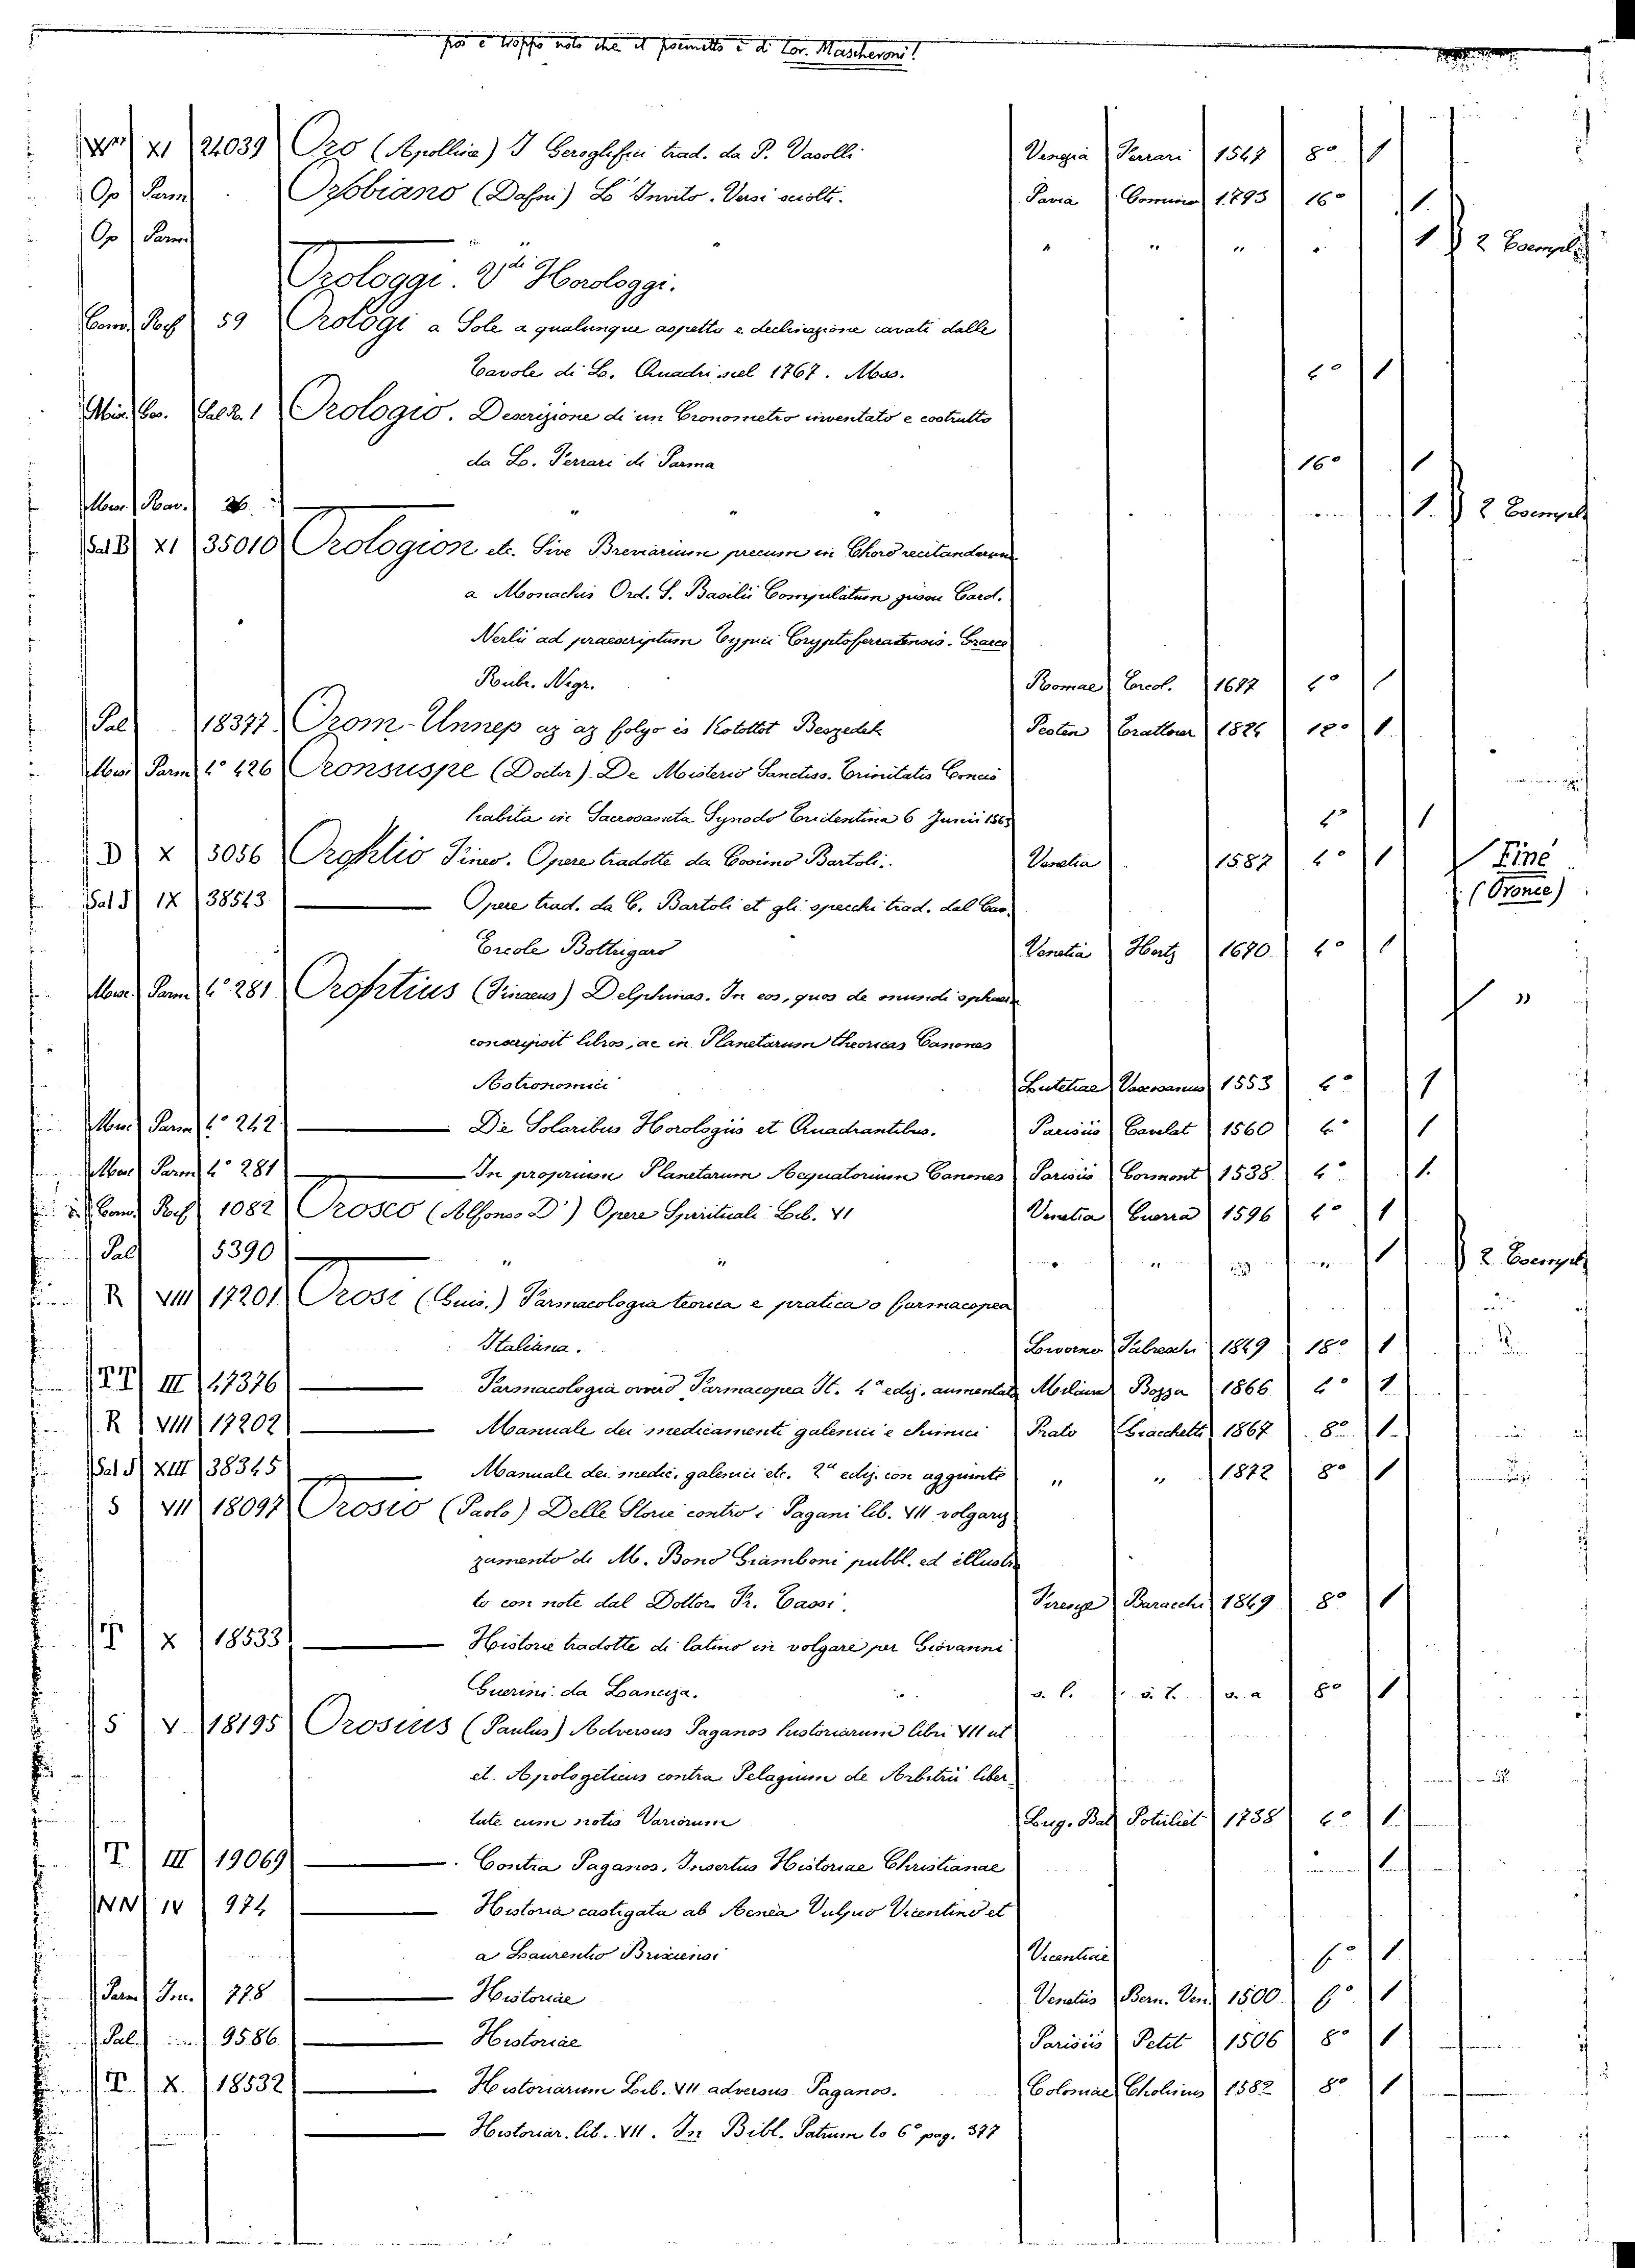 poi è troppo noto che il poemetto è di Lor. Mascheroni!
XI 24039 Oro (Apolline) I Geroglifici trad. da P. Vasolli Venezia Ferrari 1547 8° 1
Op Parm Orobiano (Dafni) L'Invito. Versi sciolti. Pavia Comino 1793 16° 1
Op Parm " " " " " " 1 2 Esempl.
Orologgi. Vdi Horologgi.
Com. Parm 59 Orologi a Sole a qualunque aspetto e declinazione cavati dalle
Tavole di L. Quadri nel 1767. Mss. 4° 1
Orologio. Descrizione di un Cronometro inventato e costrutto
da L. Ferrari di Parma 16° 1
" " " 1. 2 Esempl.
Sal B XI 35010 Orologion etc. Sive Breviarium precum in Choro recitandarum
a Monachis Ord. S. Basilii Compulatum jussu Card.
Nerlii ad praescriptum Typici Cryptoferratensis. Graece
Rubr. Nigr. Romae Ercol. 1677 4° 1
Pal 18377 Orom-Unnep az az folyo és Kotottot Beszedek Pesten Trattner 1824 12° 1
Misc Parm 4° 426 Oronsuspe (Doctor). De Misterio Sanctiss. Trinitatis Concio
habita in Sacrosancta Synodo Tridentina 6 Junii 1563 4° 1
D X 3056 Orontio Fineo. Opere tradotte da Cosimo Bartoli. Venetia 1587 4° 1 Finé
(Oronce)
Sal J IX 38543 Opere trad. da C. Bartoli et gli specchi trad. dal Cav.
Ercole Bottrigaro Venetia Hertz 1670 4° 1
Misc. Parm 4° 281 Orontius (Finaeus) Delphinas. In eos, quos de mundi sphaera "
conscripsit libros, ac in Planetarum theoricas Canones
Astronomici Lutetiae Vascosanus 1553 4° 1
Misc Parm 4° 242 De Solaribus Horologiis et Quadrantibus. Parisiis Cavelat 1560 4° 1
Misc Parm 4° 281 In proprium Planetarum Aequatorium Canones Parisiis Cormont 1538. 4° 1.
1082 Orosco (Alfonso D') Opere Spirituali Lib. VI Venetia Guerra 1596 4° 1
Pal 5390 " " " " " " 1 2. Esempl.
R VIII 17201 Orosi (Gius.) Farmacologia teorica e pratica o farmacopea
Italiana. Livorno Fabreschi 1849 18° 1
TT III 47376 Farmacologia ovvero Farmacopea It. 4a ediz. aumentata Milano Bozza 1866 4° 1
R VIII 17202 Manuale dei medicamenti galenici e chimici Prato Giacchetti 1867 8° 1
Sal J XIII 38345 Manuale dei medic. galenici etc. 2a ediz. con aggiunte " " 1872 8° 1
S VII 18097 Orosio (Paolo) Delle Storie contro i Pagani lib. VII volgariz
zamento di M. Bono Giamboni pubbl. ed illustra
to con note dal Dottor Fr. Tassi. Firenze Baracchi 1849 8° 1
T X 18533 Historie tradotte di latino in volgare per Giovanni
Guerini da Lanciza. s. l. s. t. s. a 8° 1
S V 18195 Orosius (Paulus) Adversus Paganos historiarum libri VII ut
et Apologeticus contra Pelagium de Arbitrii liber
tate cum notis Variorum Lug. Bat Potuliet 1738 4° 1
T. III 19069 Contra Paganos. Insertus Historiae Christianae 1
NN IV 974 Historia castigata ab Aenea Vulpio Vicentino et
a Laurentio Brixiensi Vicentiae f° 1
Parm Inc. 778 Historiae Venetiis Bern. Ven. 1500. f° 1
Pal. 9586 Historiae Parisiis Petit 1506 8° 1
T. X. 18532 Historiarum Lib. VII adversus Paganos. Coloniae Cholinus 1582 8° 1
Historiar. lib. VII. In Bibl. Patrum to 6° pag. 377